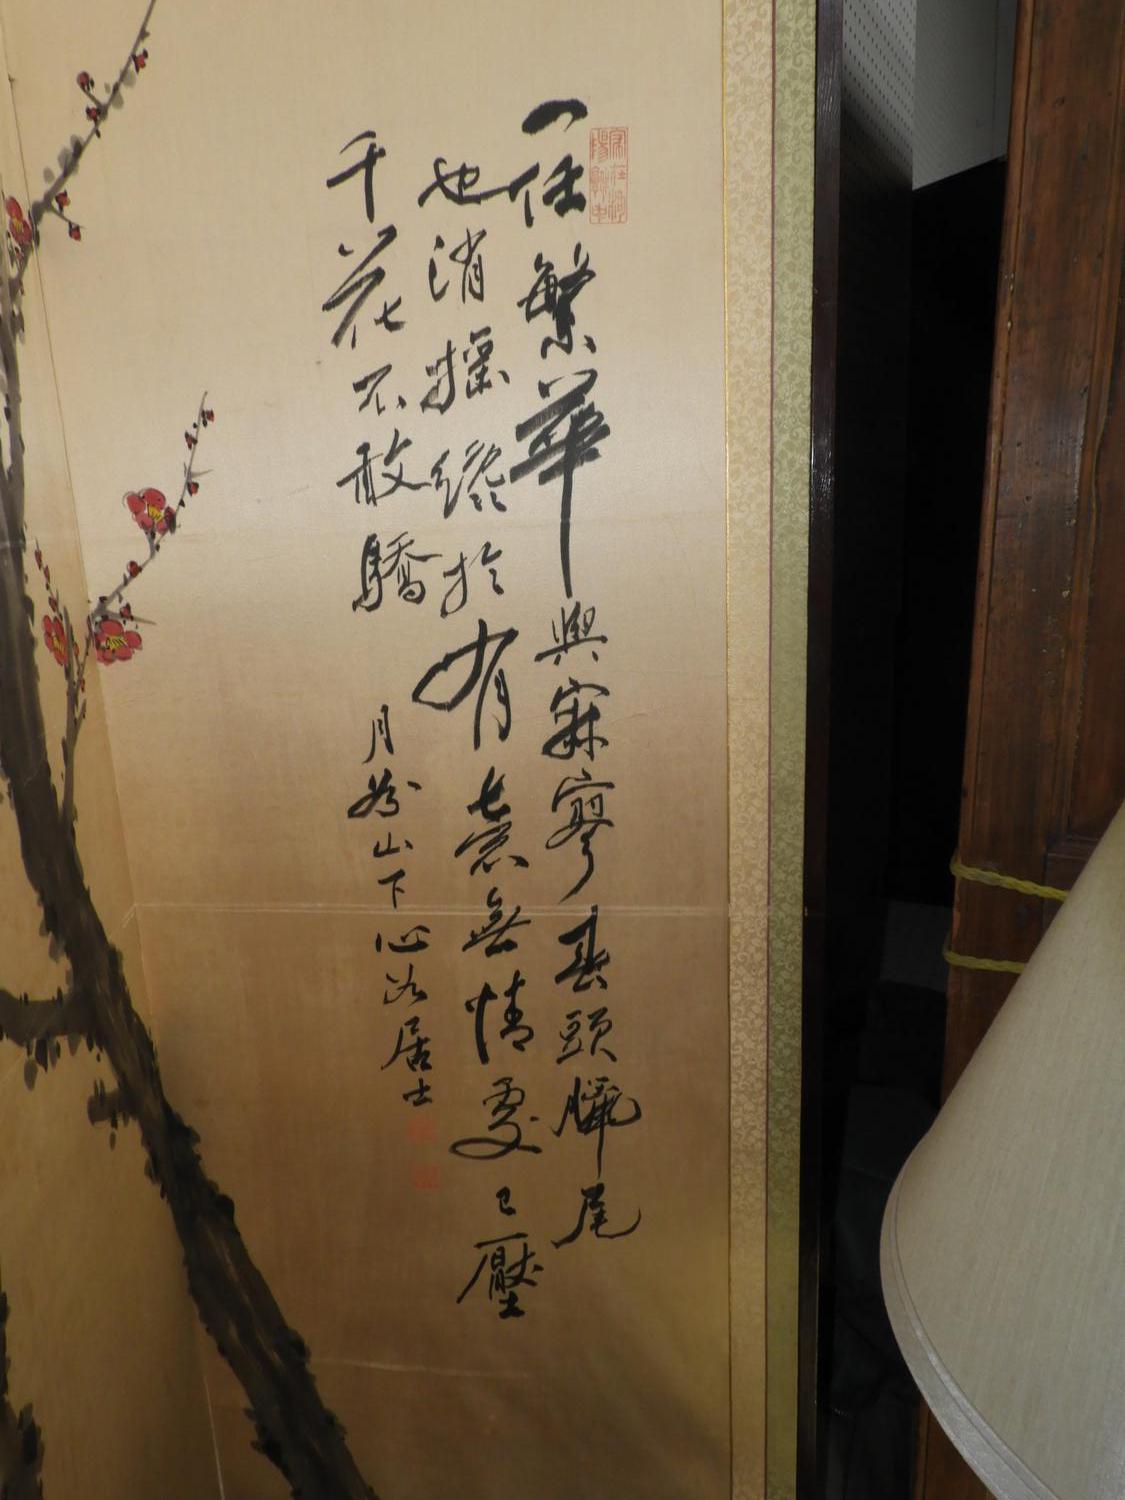 一任繁華與寂寥春頭臘尾
也消搖終於有意無情處已壓
千花不敢驕
月 山下心 居士